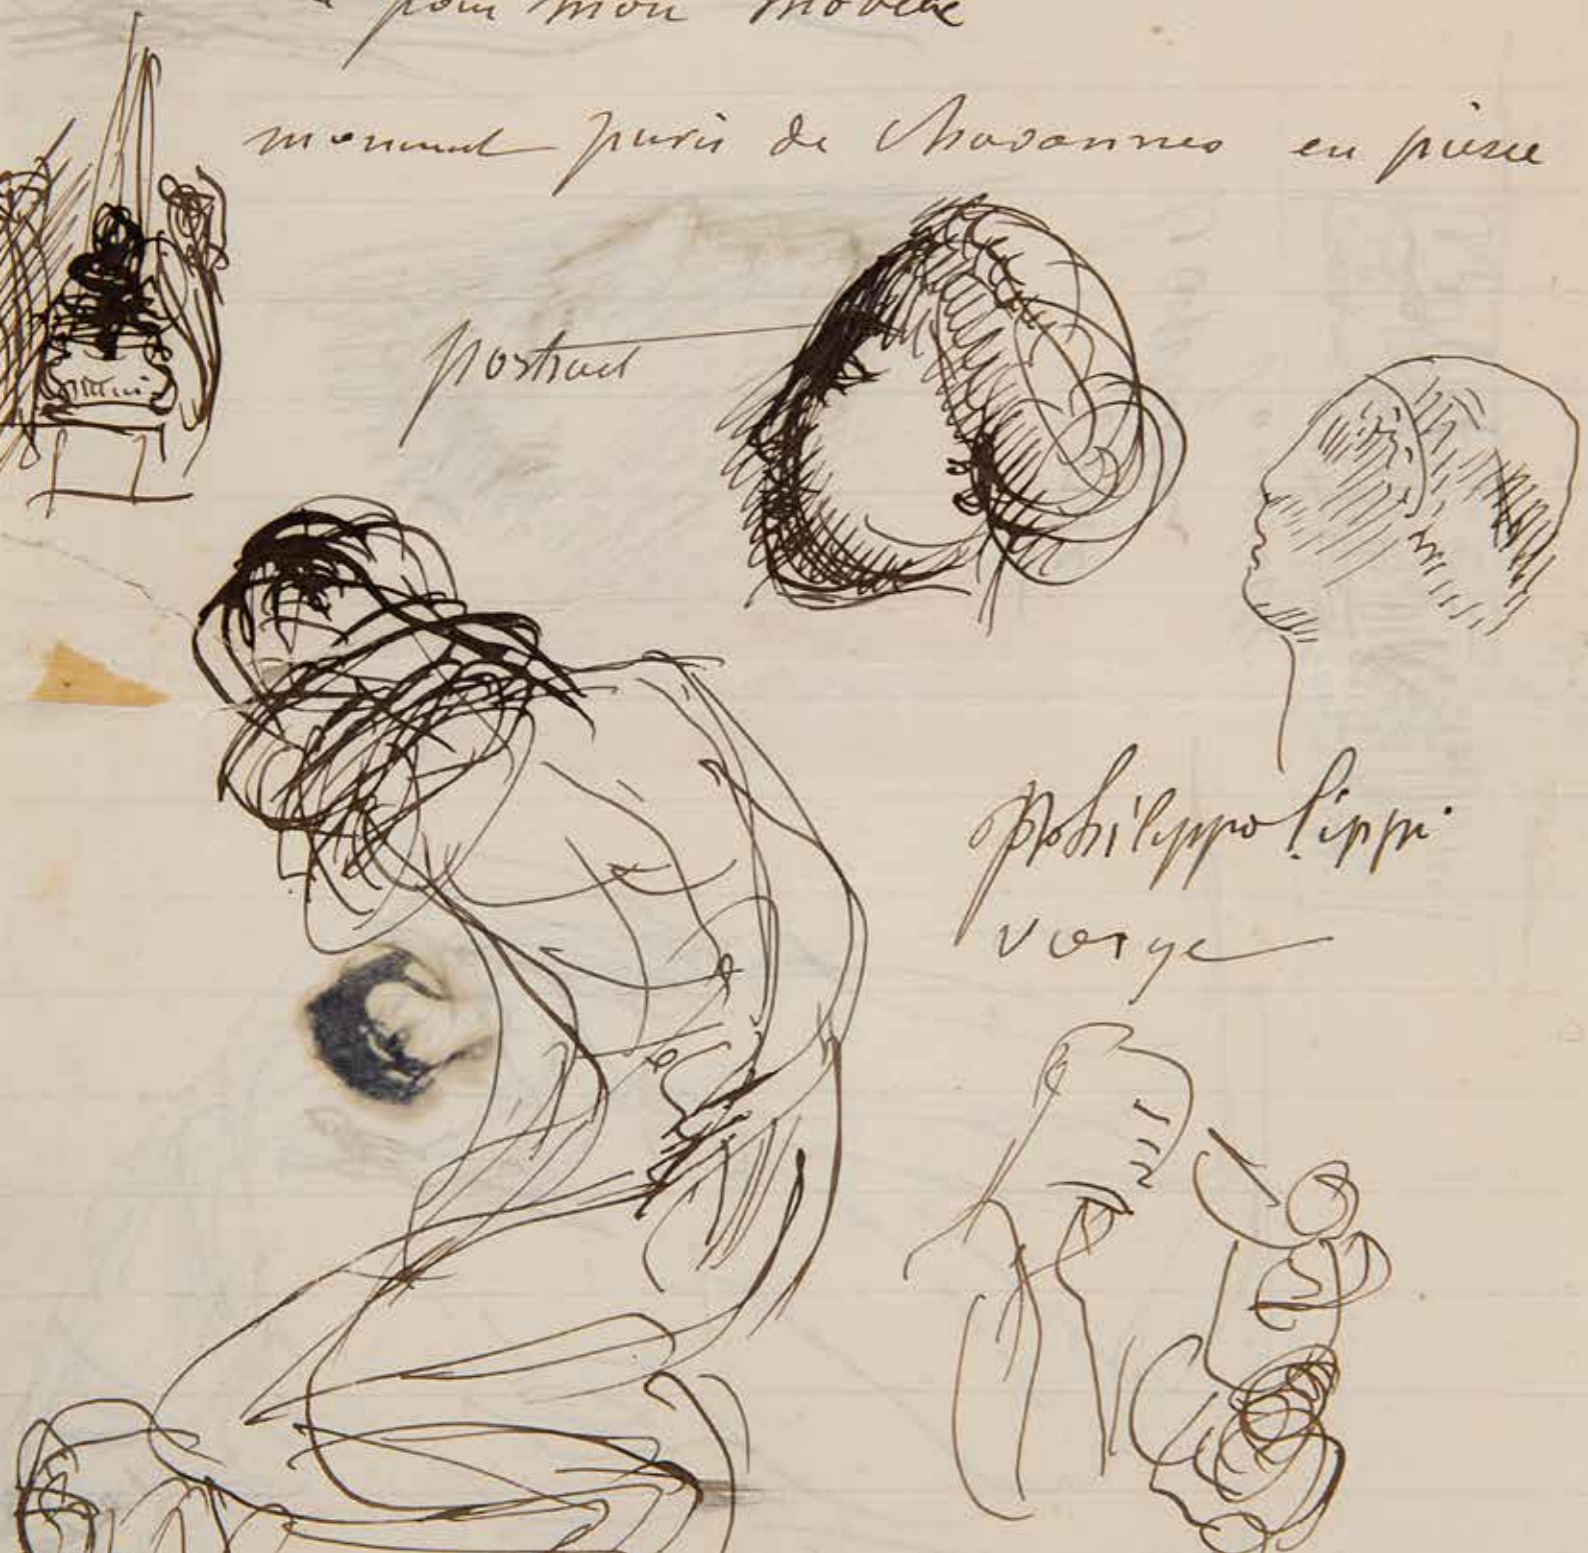 pour mon modèle
monument puvis de chavannes en pierre
portrait
philippo lippi
vierge